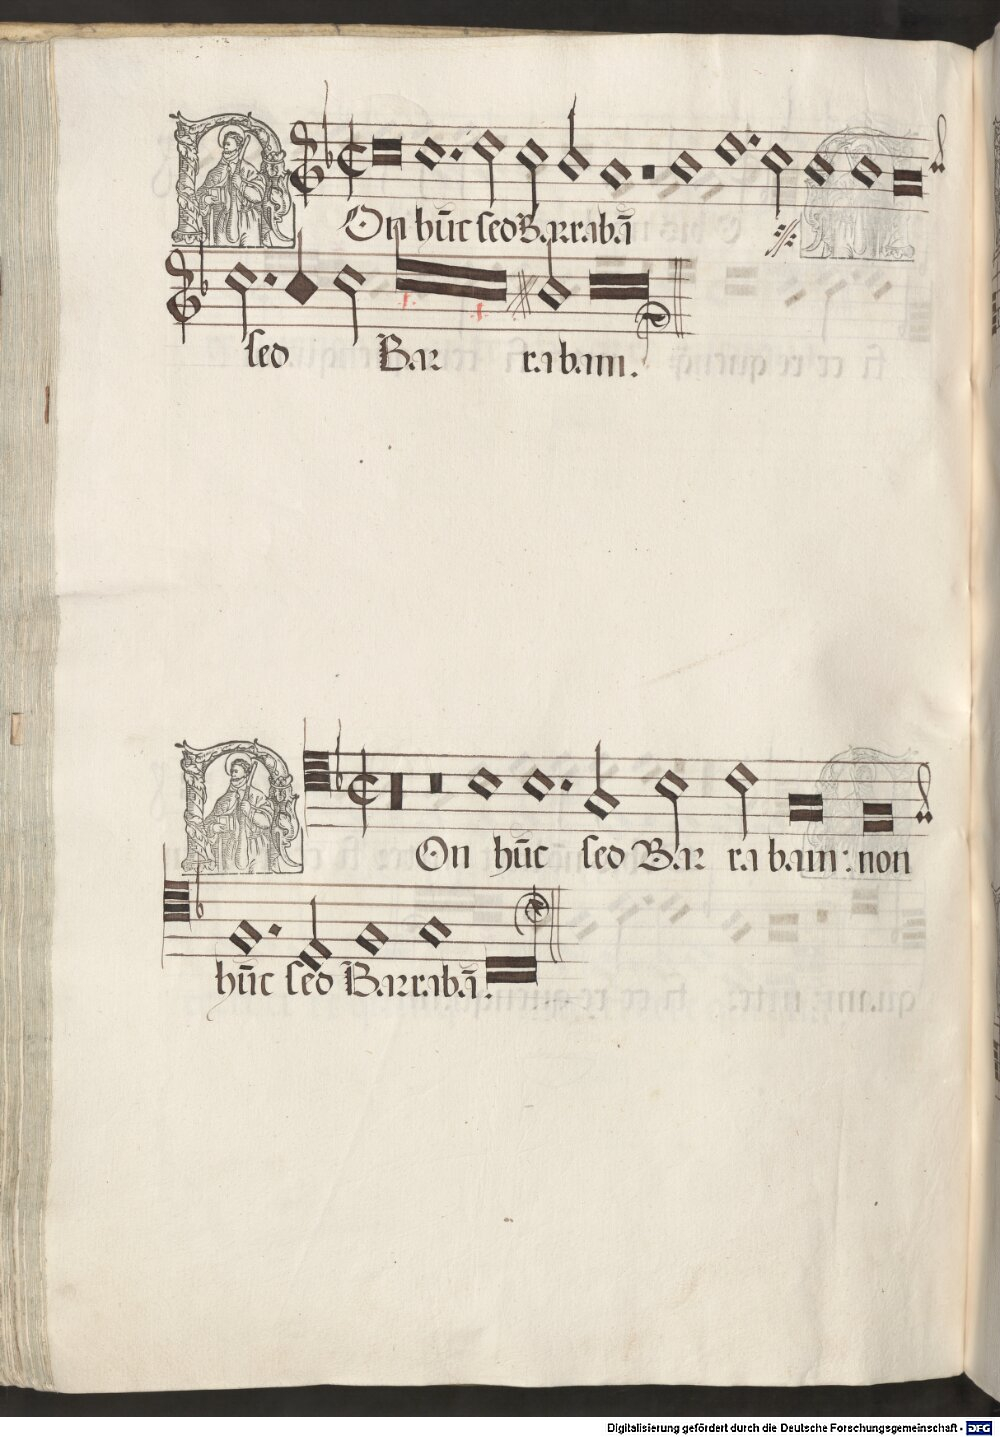 NOn hūc sed Barrabā
sed Bar rabam.
NOn hūc sed Bar ra bam: non
hūc sed Barrabā.
Digitalisierung gefördert durch die Deutsche Forschungsgemeinschaft - DFG